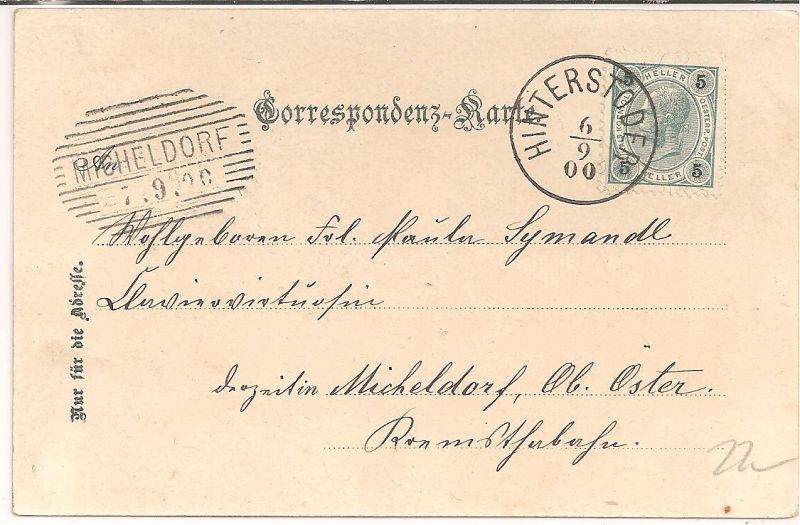 Correspondenz-Karte
HINTERSTODER
6
9
00
5 5
HELLER
OESTERR. POST
5 5
HELLER
MICHELDORF
7.9.00
An
Wohlgeboren Frl. Paula Symandl
Claviervirtuosin
derzeitin Micheldorf, Ob. Öster.
Kremsthalbahn.
Nur für die Adresse.